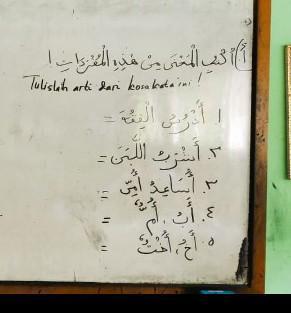 أ) أُكْتُبِ الْمَعْنَى مِنْ هٰذِهِ الْمُفْرَدَاتِ !
Tulislah arti dari kosakata ini !
١. أَدْرُسُ الْفِقْهَ =
٢. أَشْرَبُ اللَّبَنَ =
٣. أُسَاعِدُ أُمِّي =
٤. أَبٌ ، أُمٌّ =
٥. أَخٌ ، أُخْتٌ =